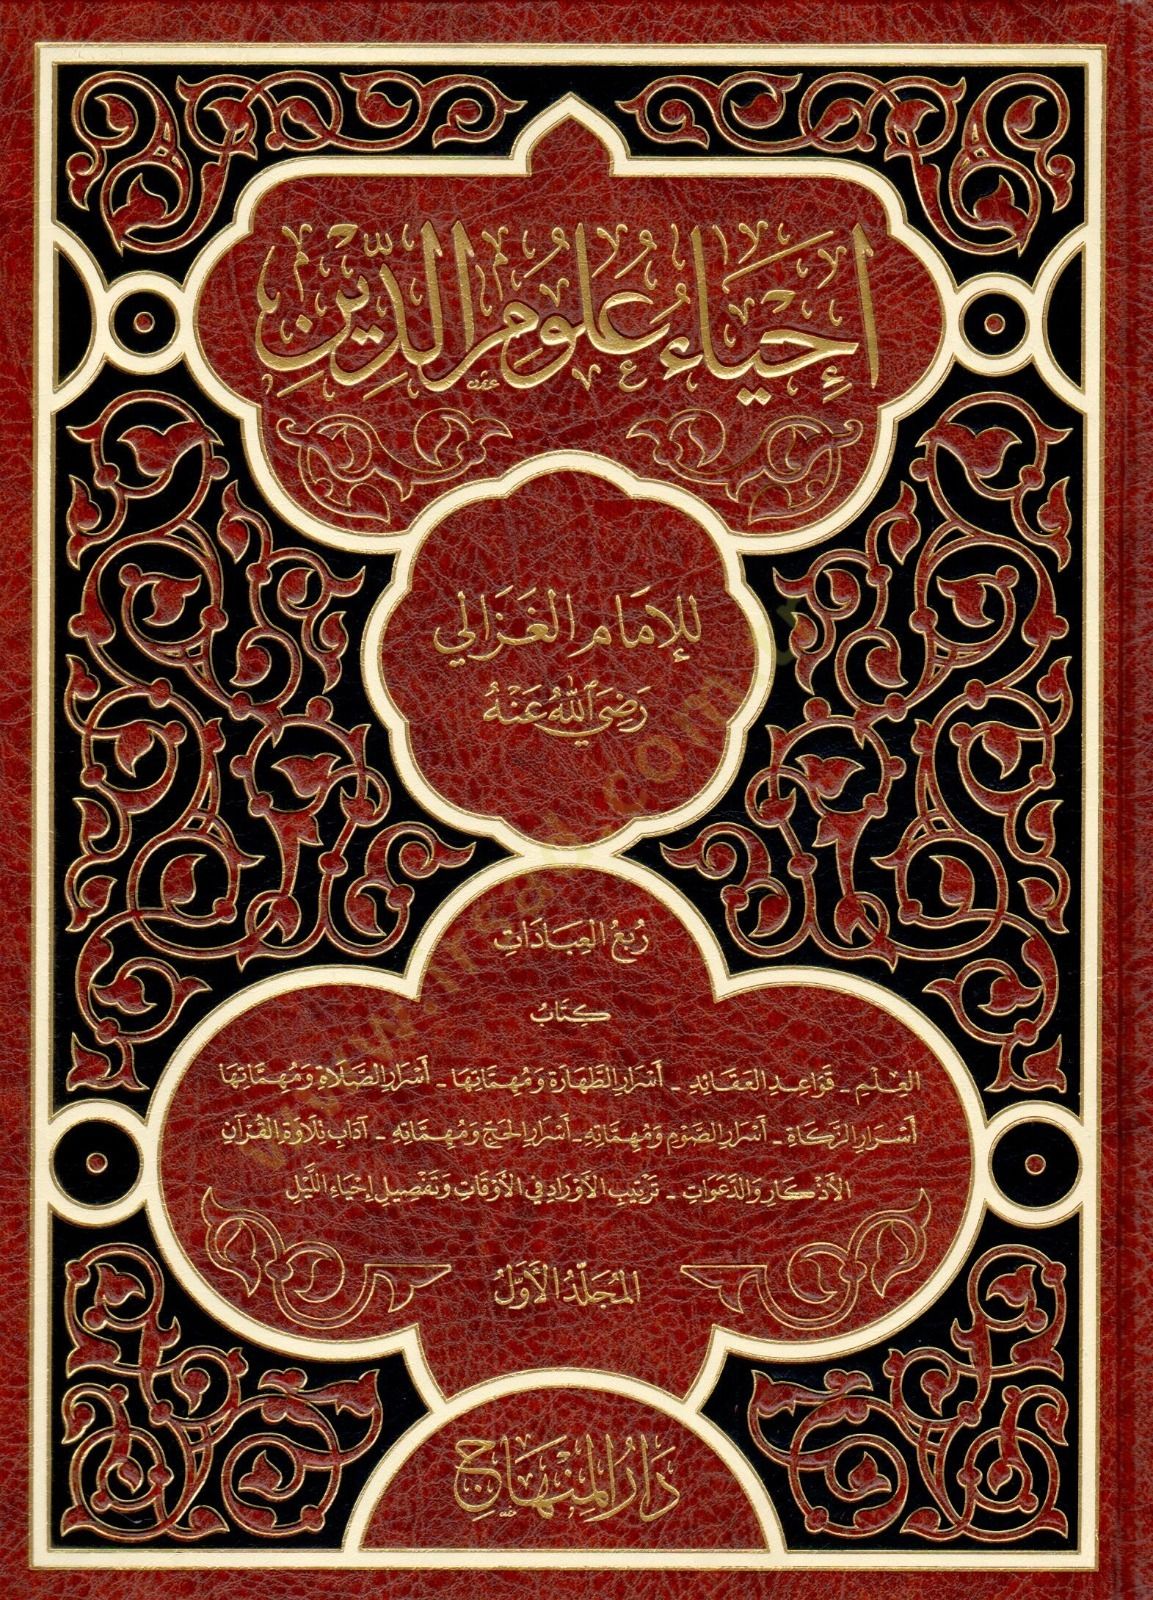 إِحْيَاءُ عُلُومِ الدِّينِ
للإمَامِ الغَزَالِي
رَضِيَ ٱللَّهُ عَنْهُ
رُبْعُ العِبَادَاتِ
كِتَابُ
العِلْمِ - قَوَاعِدِ العَقَائِدِ - أَسْرَارِ الطَّهَارَةِ وَمُهِمَّاتِهَا - أَسْرَارِ الصَّلَاةِ وَمُهِمَّاتِهَا
أَسْرَارِ الزَّكَاةِ - أَسْرَارِ الصَّوْمِ وَمُهِمَّاتِهِ - أَسْرَارِ الحَجِّ وَمُهِمَّاتِهِ - آدَابِ تِلَاوَةِ القُرْآنِ
الأَذْكَارِ وَالدَّعَوَاتِ - تَرْتِيبِ الأَوْرَادِ فِي الأَوْقَاتِ وَتَفْصِيلِ إِحْيَاءِ اللَّيْلِ
المُجَلَّدُ الأَوَّلُ
دَارُ المِنْهَاجِ